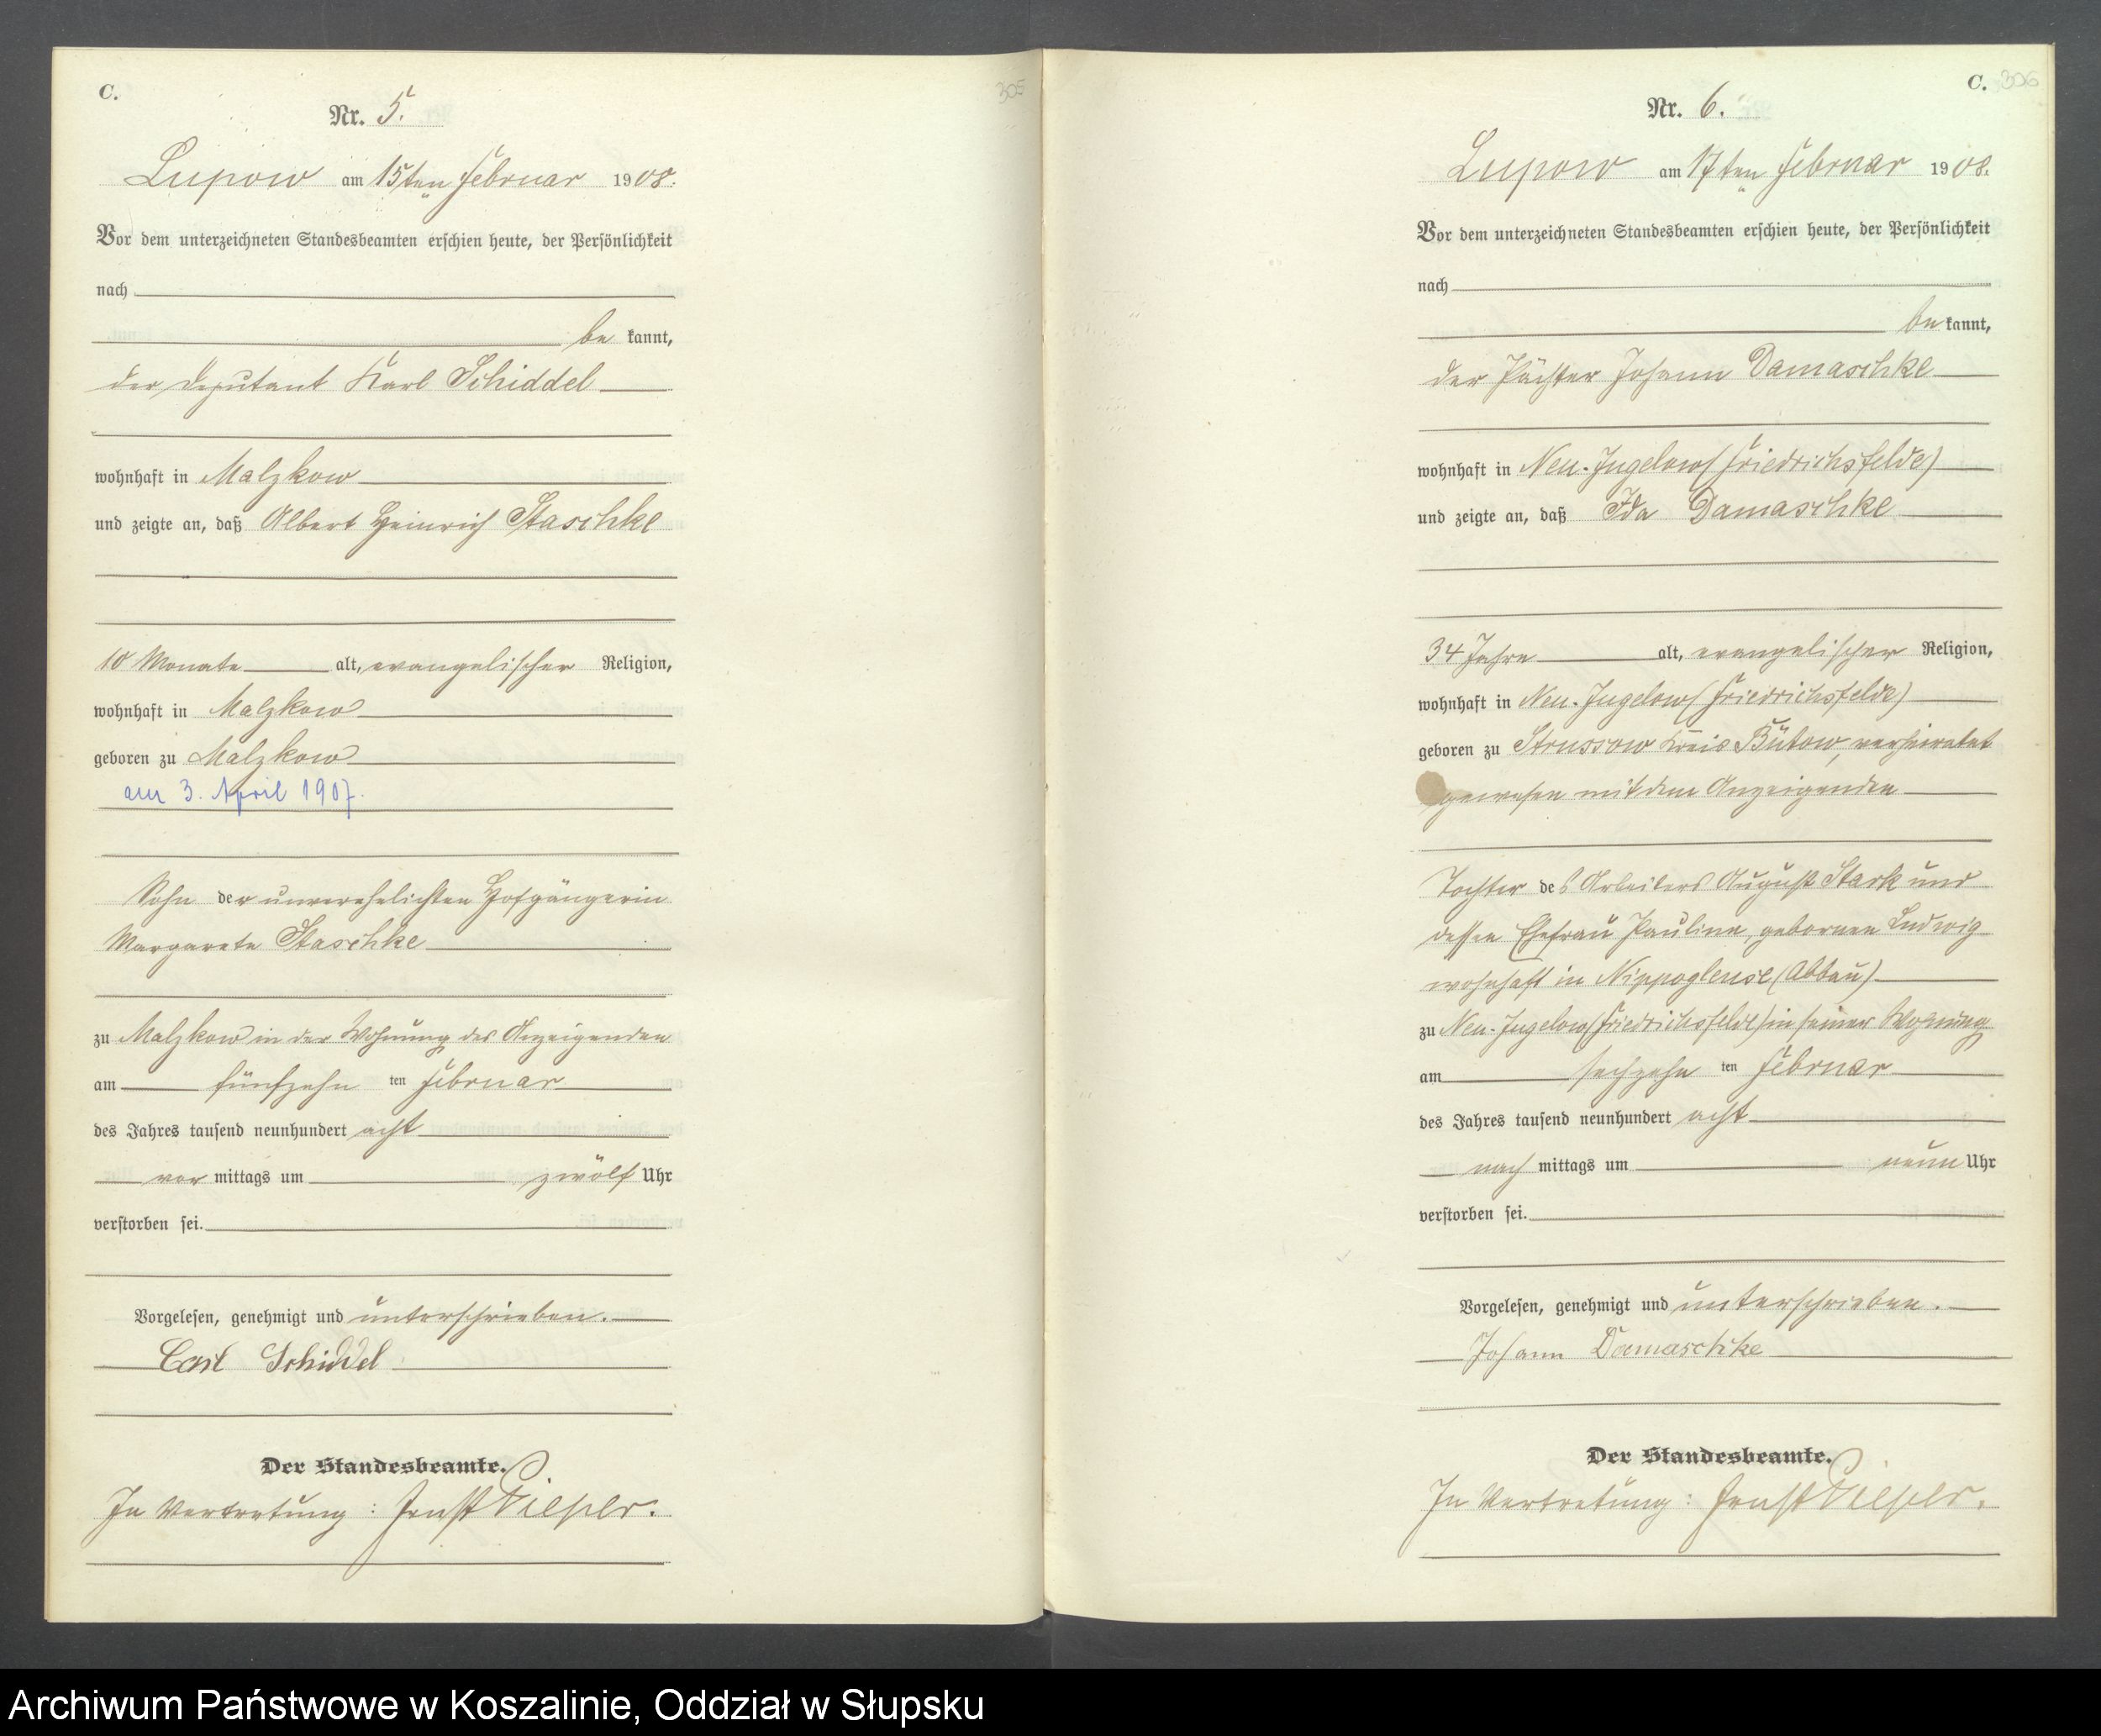 C.
305
Nr. 5.
Lupow am 15ten Februar 1908.
Vor dem unterzeichneten Standesbeamten erschien heute, der Persönlichkeit
nach
be kannt,
der Deputant Karl Schiddel
wohnhaft in Malzkow
und zeigte an, daß Albert Heinrich Staschke
10 Monate alt, evangelischer Religion,
wohnhaft in Malzkow
geboren zu Malzkow
am 3. April 1907.
Sohn der unverehelichten Hofgängerin
Margarete Staschke
zu Malzkow in der Wohnung des Anzeigenden
am fünfzehn ten Februar
des Jahres tausend neunhundert acht
vor mittags um zwölf Uhr
verstorben sei.
Vorgelesen, genehmigt und unterschrieben.
Carl Schiddel
Der Standesbeamte.
In Vertretung: Ernst Pieper.
C. 306
Nr. 6.
Lupow am 17ten Februar 1908.
Vor dem unterzeichneten Standesbeamten erschien heute, der Persönlichkeit
nach
be kannt,
der Pächter Johann Damaschke
wohnhaft in Neu-Jugelow (Friedrichsfelde)
und zeigte an, daß Ida Damaschke
34 Jahre alt, evangelischer Religion,
wohnhaft in Neu-Jugelow (Friedrichsfelde)
geboren zu Strussow Kreis Bütow, verheiratet
gewesen mit dem Anzeigenden
Tochter des Arbeiters August Stark und
dessen Ehefrau Pauline, geborenen Ludwig
wohnhaft in Nippoglense (Abbau)
zu Neu-Jugelow (Friedrichsfelde) in seiner Wohnung
am sechzehn ten Februar
des Jahres tausend neunhundert acht
nach mittags um neun Uhr
verstorben sei.
Vorgelesen, genehmigt und unterschrieben.
Johann Damaschke
Der Standesbeamte.
In Vertretung: Ernst Pieper.
Archiwum Państwowe w Koszalinie, Oddział w Słupsku